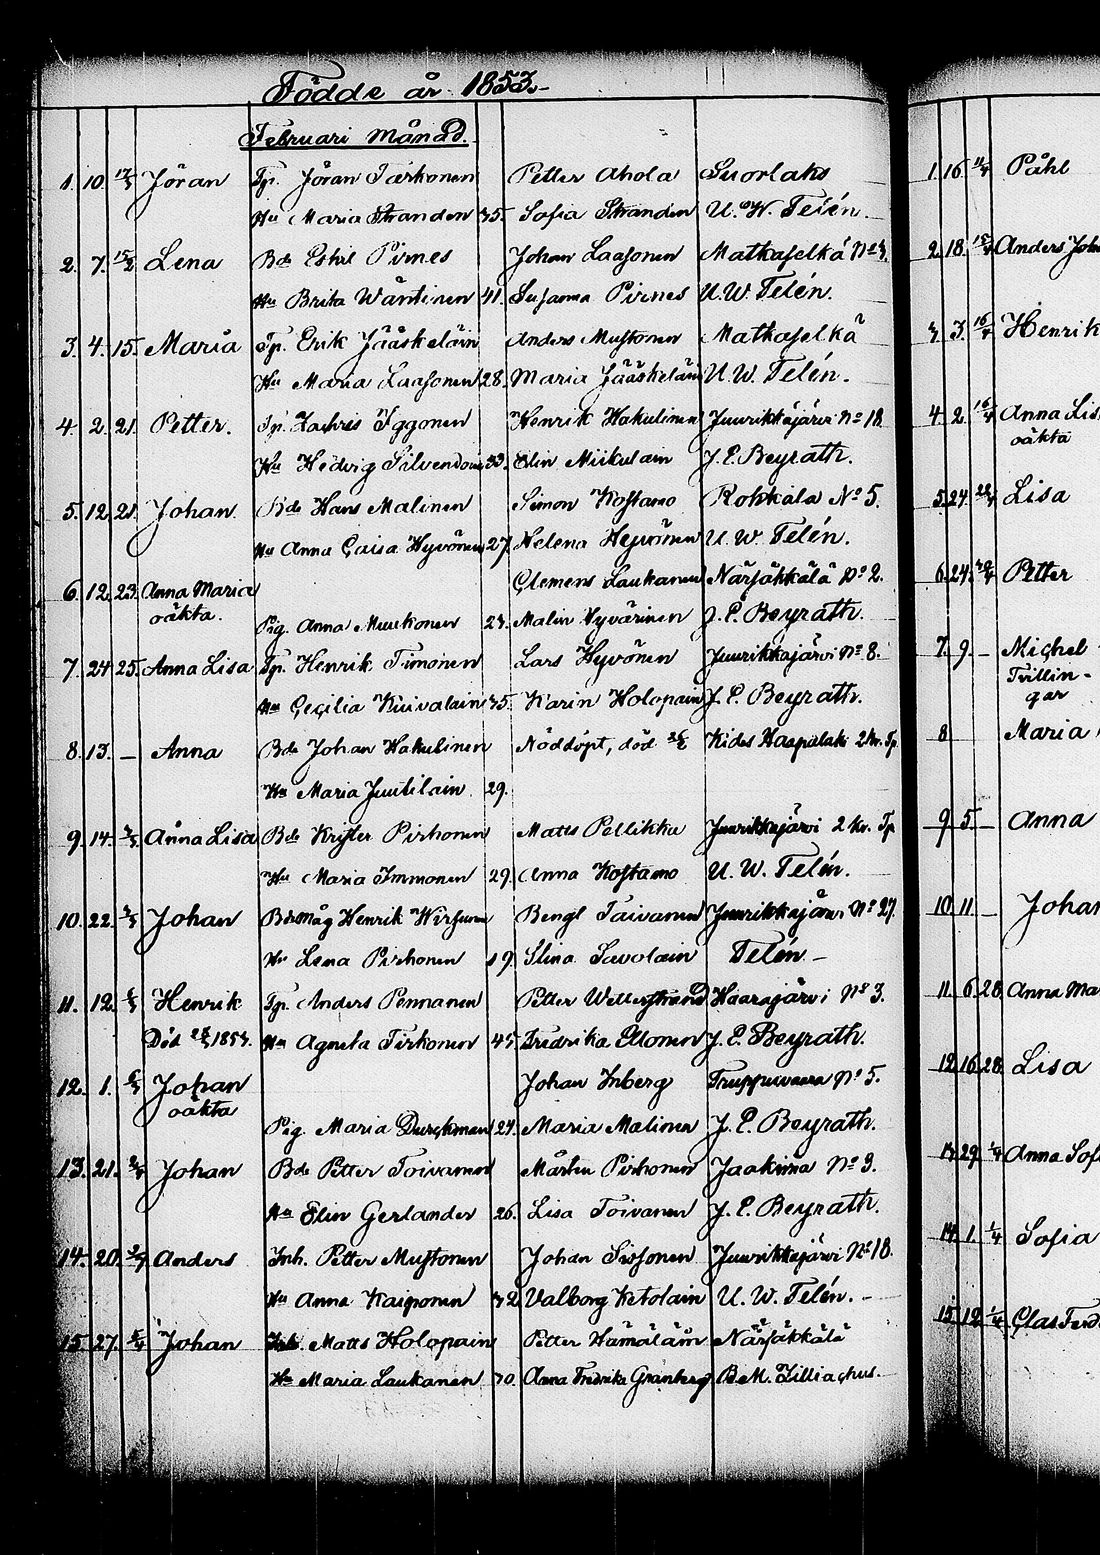 Födde år 1853.
Februari Månad.
1. 10 Jöran Tp. Jöran Tarkonen Petter Ahola Suorlaks
Hu Maria Stranden 35. Sofia Stranden U. W. Telén.
2. 7. 15/2 Lena Bde Eskil Pirnes Johan Laasonen Matkaselkä No 3.
Hu Brita Wäntinen 41. Susanna Pirnes U. W. Telén.
3. 4. 15. Maria Tp. Erik Jääskeläin Anders Mustonen Matkaselkä
Hu Maria Laasonen 28. Maria Jääskeläin U. W. Telén.
4. 2. 21. Petter. Tp. Zachris Iggonen Henrik Hakulinen Juurikkajärvi No 18
Hu Hedvig Silvendoin 33. Elin Miikulain J. E. Beyrath.
5. 12. 21. Johan. Bde Hans Malinen Simon Kostamo Rokkala No 5.
Hu Anna Caisa Hyvönen 27. Helena Hyvönen U. W. Telén.
6. 12. 23. Anna Maria Clemens Laukanen Närsäkkälä No 2.
oäkta.
Pig. Anna Muukonen 23. Malin Hyvärinen J. E. Beyrath.
7. 24 25. Anna Lisa Tp. Henrik Timonen Lars Hyvönen Juurikkajärvi No 8.
Hu Cecilia Kuivalain 35. Karin Holopain J. E. Beyrath.
8. 13. – Anna Bde Johan Hakulinen Nöddöpt, död Kides Haapalaks 2 kv. Tp.
Hu Maria Juutilain 29.
9. 14. Anna Lisa Bde Krister Pirhonen Matts Pellikka Juurikkajärvi 2 kv. Tp.
Hu Maria Immonen 29. Anna Kostamo U. W. Telén.
10. 22. Johan Bdemåg Henrik Hirfunen Bengt Taivanen Juurikkajärvi No 27.
Hu Lena Pirhonen 19. Stina Savolain Telén –
11. 12. Henrik Tp. Anders Pennanen Petter Wetterstrand Haarajärvi No 3.
Död 1853. Hu Agneta Tirkonen 45. Fredrika Elonen J. E. Beyrath.
12. 1. Johan Johan Inberg Truppuvaara No 5.
oäkta
Pig. Maria Durchman 27. Maria Malinen J. E. Beyrath.
13. 21. Johan Bde Petter Toivanen Mårten Pirhonen Jaakima No 3.
Hu Elin Gerlander 26. Lisa Toivanen J. E. Beyrath.
14. 20. Anders Inh. Petter Mustonen Johan Sissonen Juurikkajärvi No 18.
Hu Anna Kaiponen 32 Valborg Ketolain U. W. Telén. –
15. 27. Johan Inh. Matts Holopain Petter Hämäläin Närsäkkälä
Hu Maria Laukanen 30. Anna Fredrika Granberg B. M. Zilliachus.
1. 16 Påhl
2. 18. Anders Joh
3 3. Henrik
4 2. Anna Lis
oäkta
5. 24. Lisa
6. 24. Petter
7. 9. – Michel
Tvillin-
gar
8 Maria
9 5. – Anna
10 11. – Johan
11. 6. 28 Anna Ma
12. 16. 28. Lisa
13. 29. 1/4 Anna Sof
14. 1. 1/4 Sofia
15. 12. 1/4 Clas Ferd